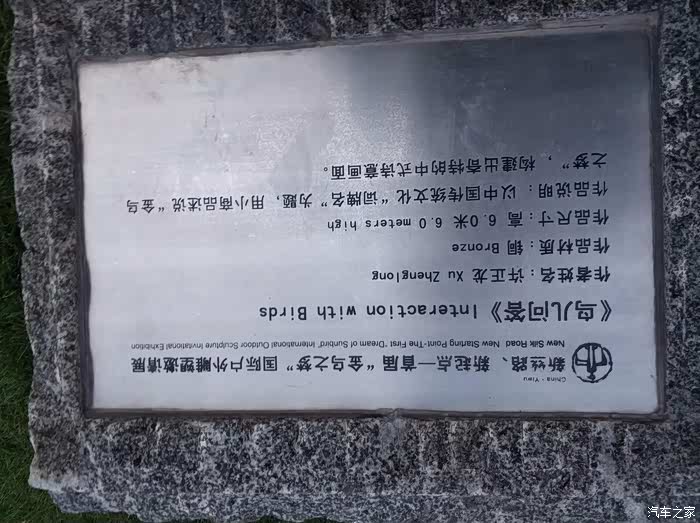 China · Yiwu
新丝路、新起点—首届“金乌之梦”国际户外雕塑邀请展
New Silk Road New Starting Point-The First 'Dream of Sunbird' International Outdoor Sculpture Invitational Exhibition
《鸟儿问答》 Interaction with Birds
作者姓名：许正龙 Xu Zhenglong
作品材质：铜 Bronze
作品尺寸：高 6.0米 6.0 meters high
作品说明：以中国传统文化“词牌名”为题，用小商品述说“金乌
之梦”，构建出奇特的中式诗意画面。
汽车之家